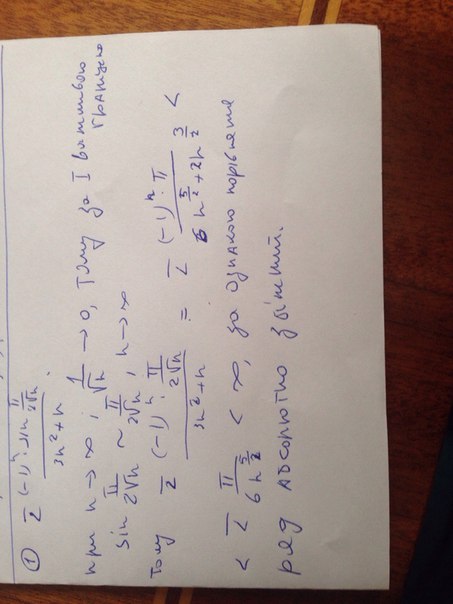 ① Σ (-1)ⁿ · sin π/(2√n) / (3n² + n) .
при n → ∞ , 1/√n → 0, тому за I важливою границею
sin π/(2√n) ~ π/(2√n) , n → ∞
Тому Σ (-1)ⁿ · π/(2√n) / (3n² + n) = Σ (-1)ⁿ · π / (6n^(5/2) + 2n^(3/2)) <
< Σ π / (6n^(5/2)) < ∞, за ознакою порівняння
ряд абсолютно збіжний.